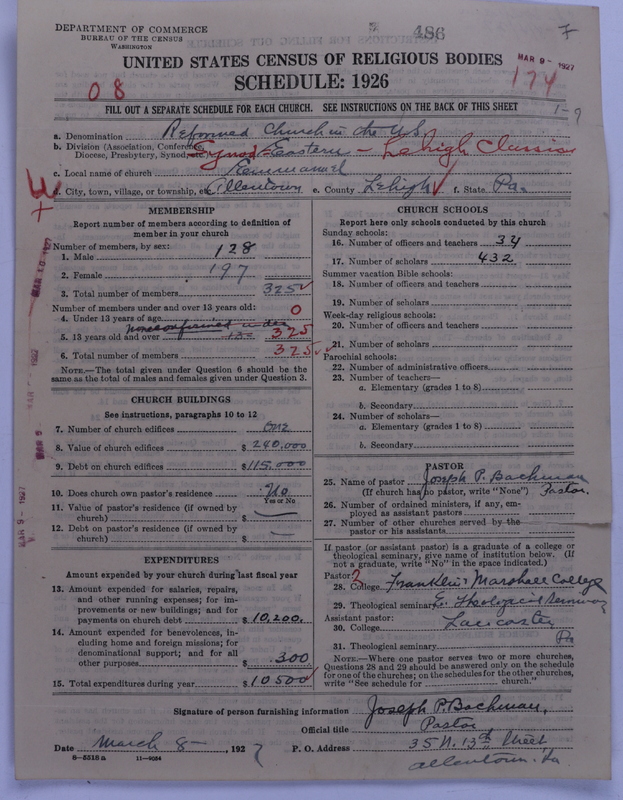 DEPARTMENT OF COMMERCE
BUREAU OF THE CENSUS
WASHINGTON
486
7
UNITED STATES CENSUS OF RELIGIOUS BODIES
MAR 9 - 1927
SCHEDULE: 1926
08
174
FILL OUT A SEPARATE SCHEDULE FOR EACH CHURCH. SEE INSTRUCTIONS ON THE BACK OF THIS SHEET
1-9
a. Denomination Reformed Church in the U.S.
b. Division (Association, Conference, Diocese, Presbytery, Synod, etc.) Synod-Eastern - Lehigh Classis
c. Local name of church Emmanuel
d. City, town, village, or township, etc. Allentown e. County Lehigh f. State Pa.
MEMBERSHIP
Report number of members according to definition of
member in your church
Number of members, by sex:
1. Male 128
2. Female 197
3. Total number of members 325
Number of members under and over 13 years old:
4. Under 13 years of age 0
none confirmed under
5. 13 years old and over 13 325
6. Total number of members 325
NOTE.—The total given under Question 6 should be
same as the total of males and females given under Question 3.
CHURCH BUILDINGS
See instructions, paragraphs 10 to 12
7. Number of church edifices One
8. Value of church edifices $240,000
9. Debt on church edifices $115,000
10. Does church own pastor's residence No
Yes or No
11. Value of pastor's residence (if owned by
church) $ —
12. Debt on pastor's residence (if owned by
church) $ —
EXPENDITURES
Amount expended by your church during last fiscal year
13. Amount expended for salaries, repairs,
and other running expenses; for im-
provements or new buildings; and for
payments on church debt $10,200.
14. Amount expended for benevolences, in-
cluding home and foreign missions; for
denominational support; and for all
other purposes $ 300
15. Total expenditures during year $10500
CHURCH SCHOOLS
Report here only schools conducted by this church
Sunday schools:
16. Number of officers and teachers 34
17. Number of scholars 432
Summer vacation Bible schools:
18. Number of officers and teachers
19. Number of scholars
Week-day religious schools:
20. Number of officers and teachers
21. Number of scholars
Parochial schools:
22. Number of administrative officers
23. Number of teachers—
a. Elementary (grades 1 to 8)
b. Secondary
24. Number of scholars—
a. Elementary (grades 1 to 8)
b. Secondary
PASTOR
25. Name of pastor Joseph P. Bachman
(If church has no pastor, write "None") Pastor.
26. Number of ordained ministers, if any, em-
ployed as assistant pastors
27. Number of other churches served by the
pastor or his assistants
If pastor (or assistant pastor) is a graduate of a college or
theological seminary, give name of institution below. (If
not a graduate, write "No" in the space indicated.)
Pastor: 3
28. College Franklin & Marshall College
29. Theological seminary E. Theological Seminary
Assistant pastor: Lancaster
30. College
Pa
31. Theological seminary
NOTE.—Where one pastor serves two or more churches,
Questions 28 and 29 should be answered only on the schedule
for one of the churches; on the schedules for the other churches,
write "See schedule for church."
Signature of person furnishing information Joseph P. Bachman,
Official title Pastor
Date March 8 - , 1927 P. O. Address 35 N. 13th Street
8—5518 a 11—9084 Allentown. Pa.
MAR 9 - 1927